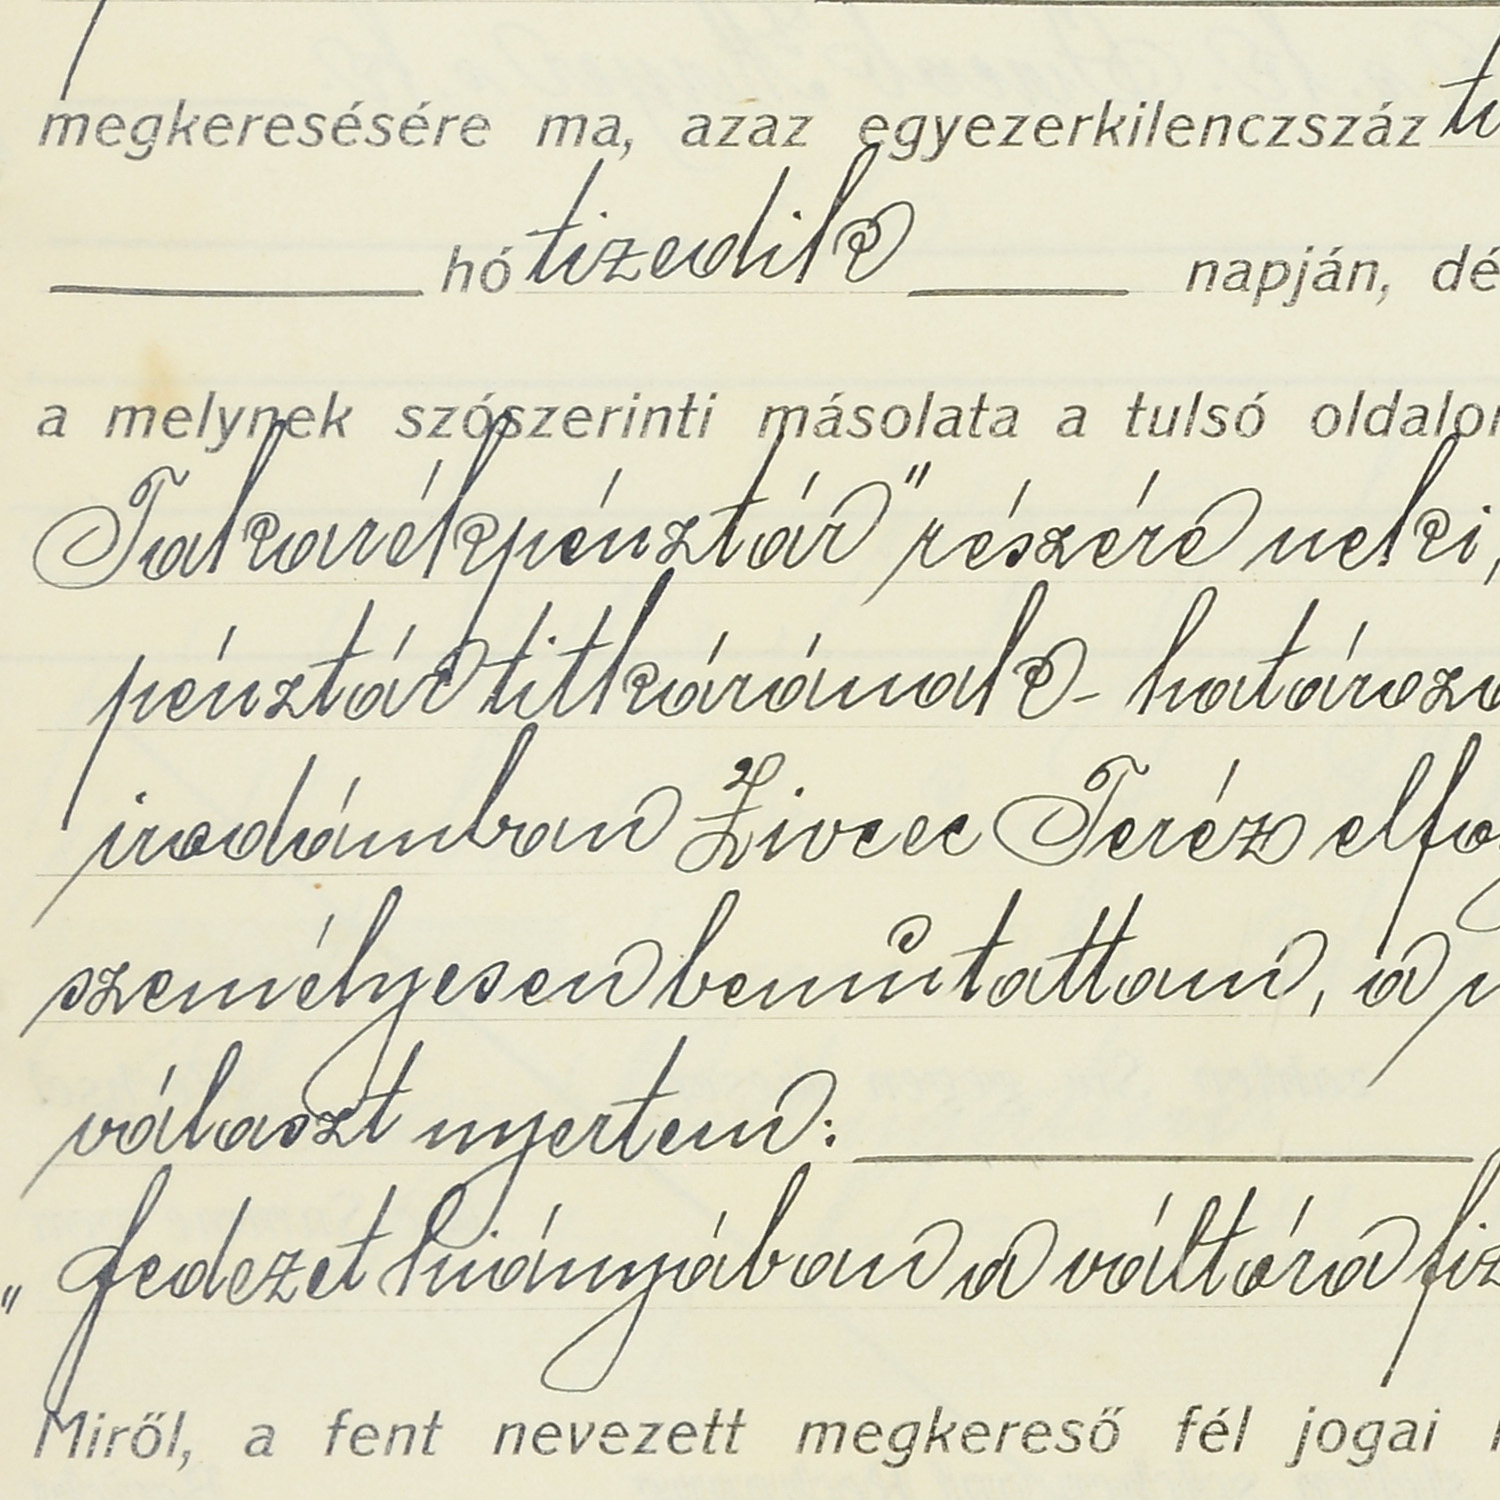 megkeresésére ma, azaz egyezerkilenczszáz
hó tizedik napján, dé
a melynek szószerinti másolata a tulsó oldalon
Takarékpénztár" részére neki,
pénztár titkárának - határoza
irodámban Živcec Teréz elfo
személyesen bemutattam, a
választ nyertem:
„Fedezet hiányában a váltóra fiz
Miről, a fent nevezett megkereső fél jogai